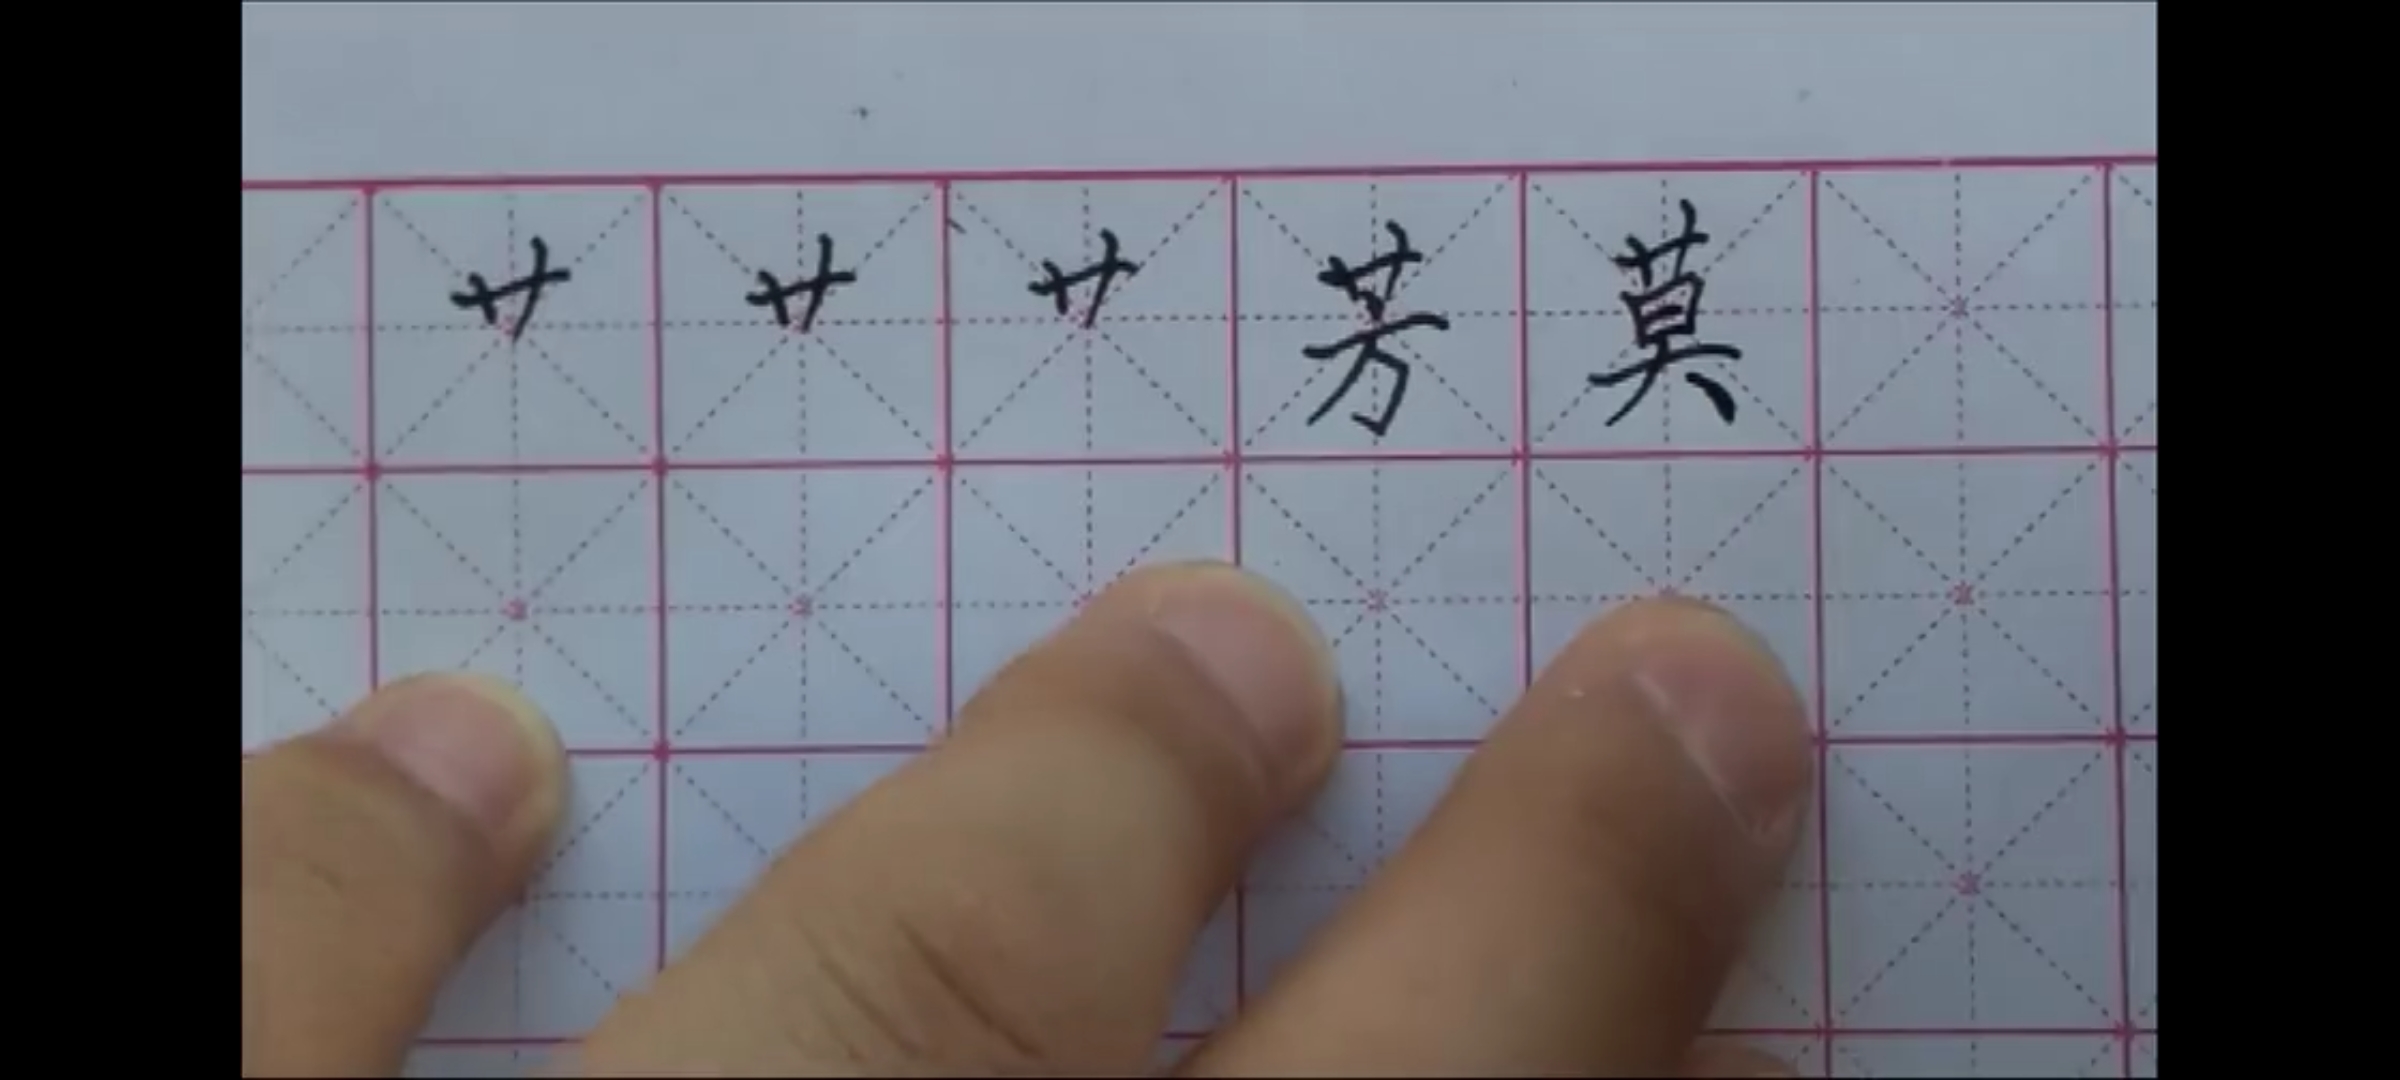 艹 艹 艹 芳 莫